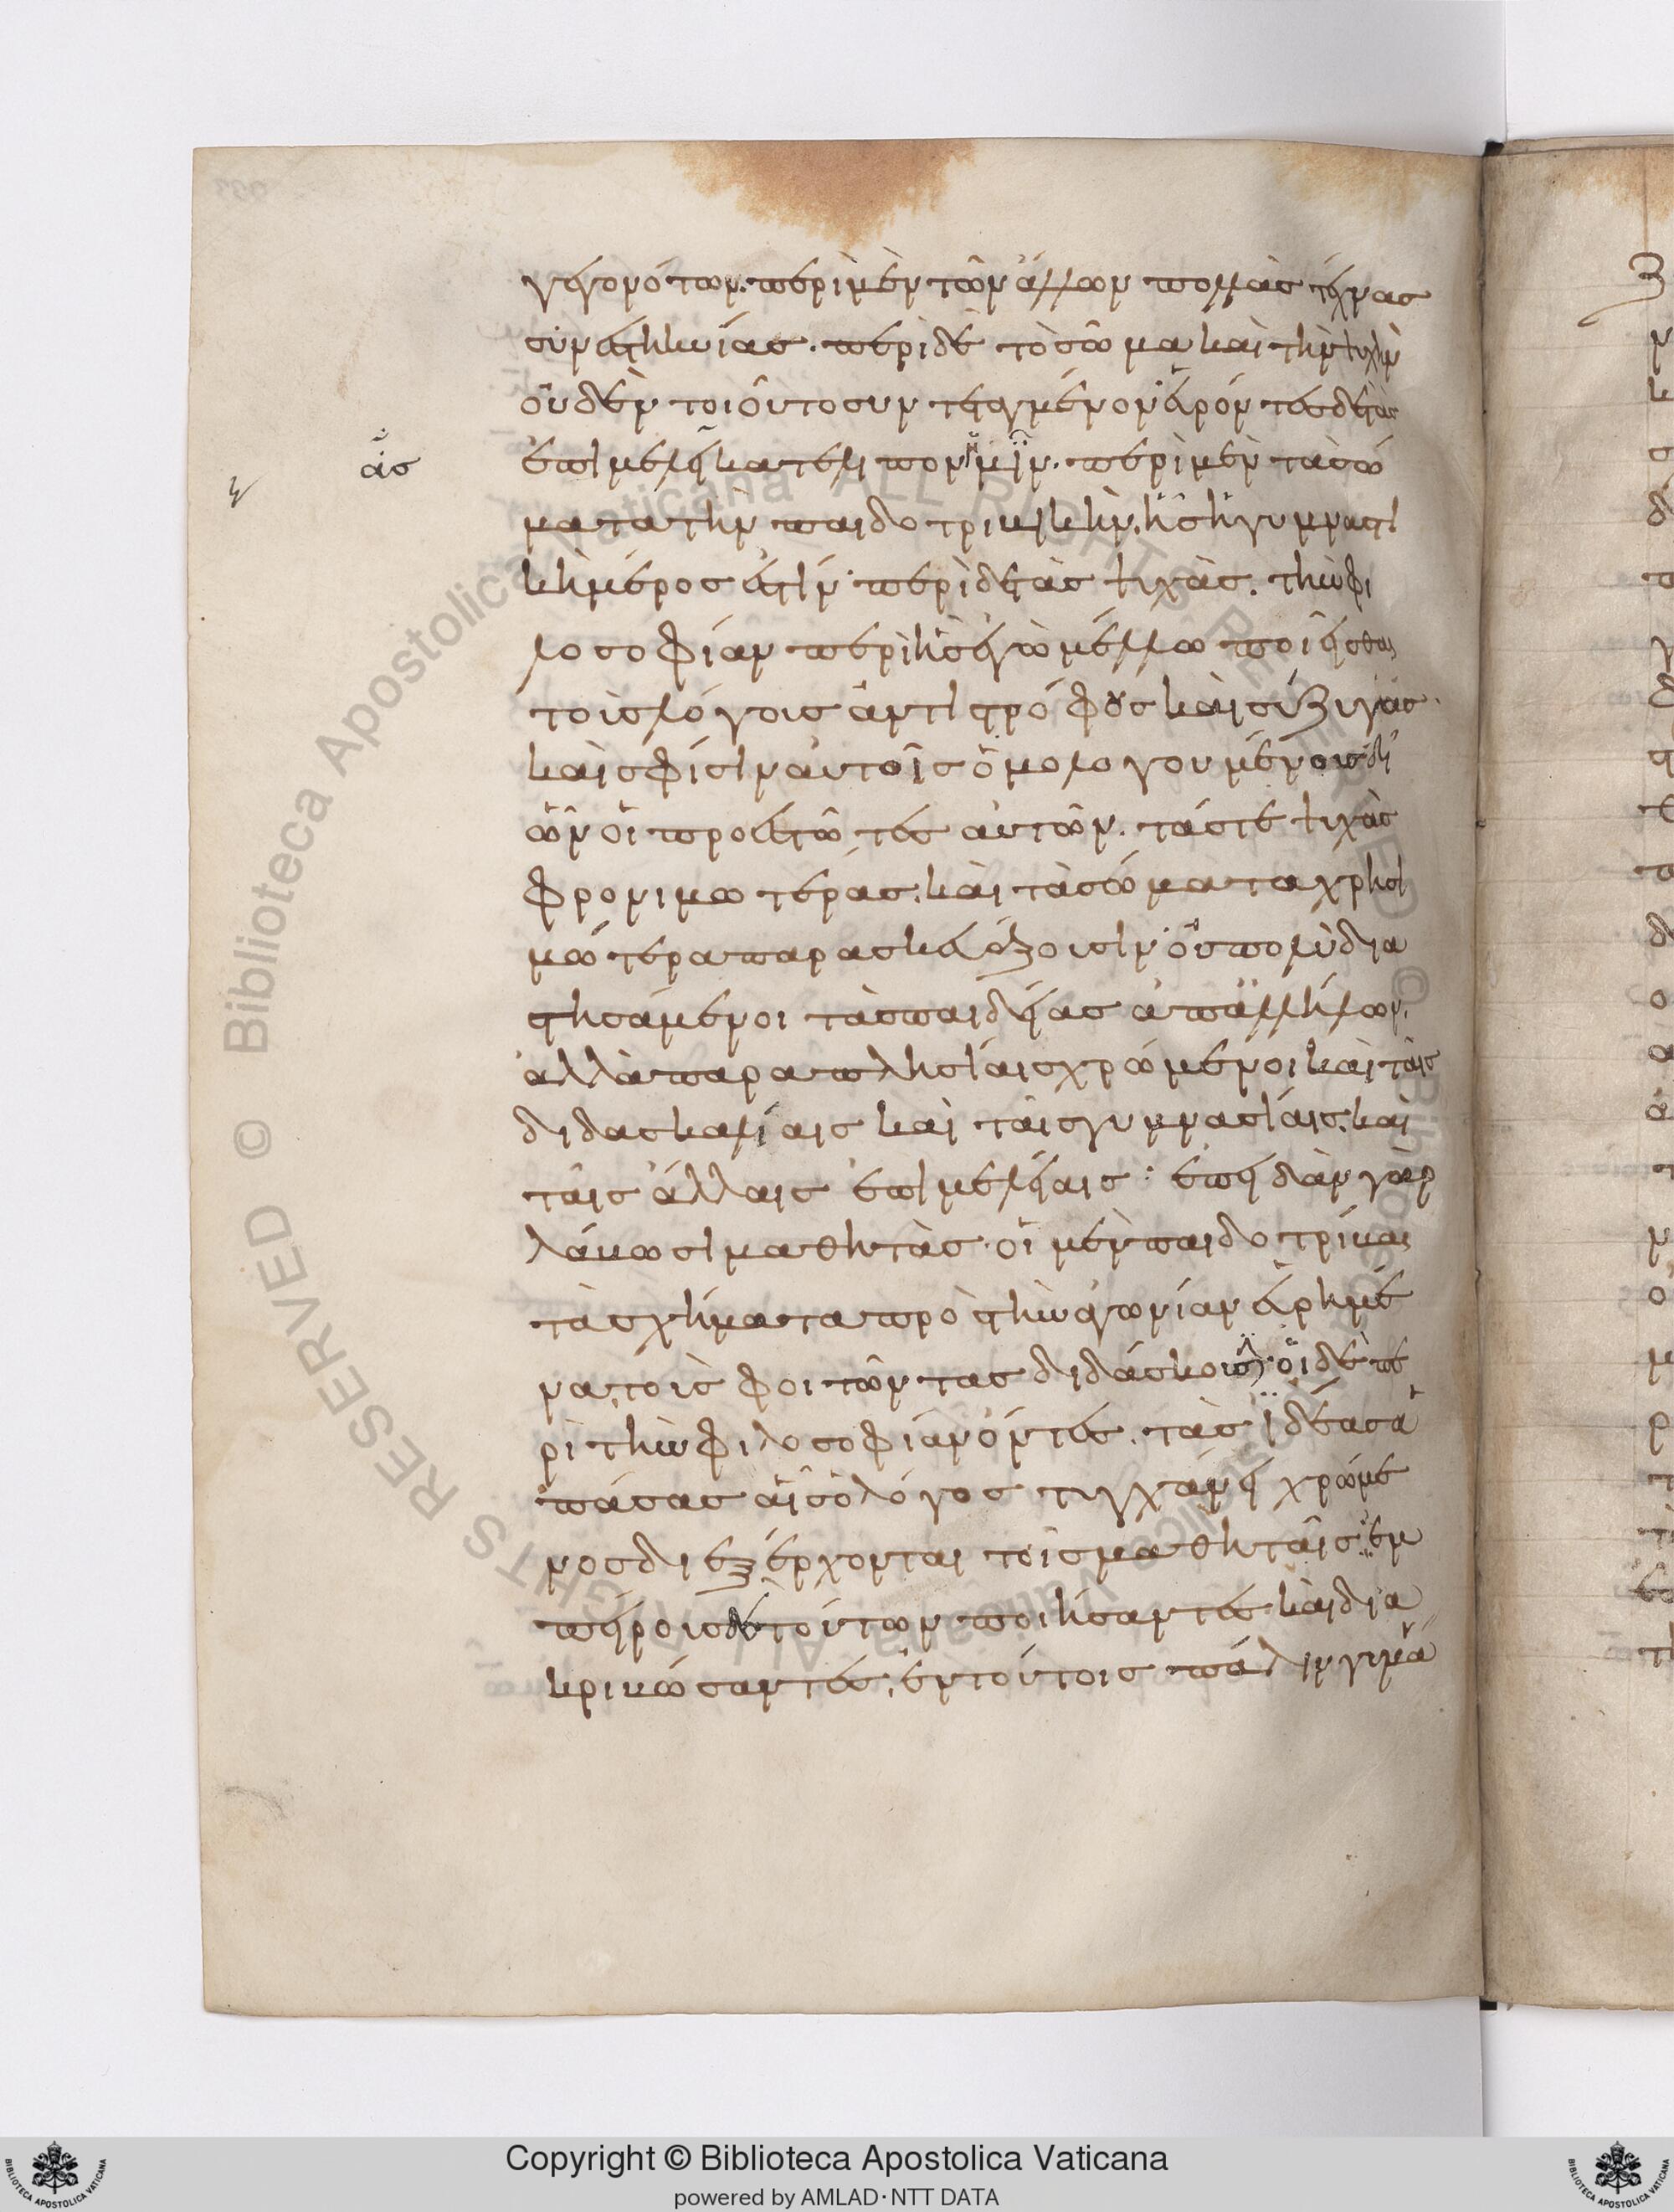 γεγονότων. περὶ μὲν τῶν ἄλλων πολλὰς τέχνας
συνεστηκυίας. περὶ δὲ τὸ σῶμα καὶ τὴν ψυχὴν
οὐδὲν τοιοῦτο συντεταγμένον εὑρόντες δισσὰς
ἐπιμελεί κατέλιπον ἡμῖν. περὶ μὲν τὰ σώ
ἀς
ματα τὴν παιδοτριβικὴν. ἧς ἡ γυμναστι
κὴ μέρος ἐστίν· περὶ δὲ τὰς ψυχὰς. τὴν φι
λοσοφίαν περὶ ἧς ἐγὼ μέλλω ποιεῖσθαι
τοὺς λόγους ἀντιστρόφους καὶ συζύγας.
καὶ σφίσιν αὐτοῖς ὁμολογουμένους δι
ὧν οἱ προεστῶτες αὐτῶν. τάς τε ψυχὰς
φρονιμωτέρας. καὶ τὰ σώματα χρησι
μώτερα παρασκευάζουσιν· οὐ πολὺ δια
στησάμενοι τὰς παιδείας ἀπ ἀλλήλων.
ἀλλὰ παραπλησίαις χρώμενοι καὶ ταῖς
διδασκαλίαις καὶ ταῖς γυμνασίαις. καὶ
ταῖς ἄλλαις ἐπιμελείαις· ἐπειδὰν γὰρ
λάβωσι μαθητὰς· οἱ μὲν παιδοτρίβαι
τὰ σχήματα πρὸς τὴν ἀγωνίαν εὑρημέ
να τοὺς φοιτῶντας διδάσκουσιν· οἱ δὲ πε
ρὶ τὴν φιλοσοφίαν ὄντες. τὰς ἰδέας ἁ
πάσας αἷς ὁ λόγος τυγχάνει χρώμε
νος διεξέρχονται τοῖς μαθηταῖς· ἐμ
πείρους δὲ τούτων ποιήσαντες καὶ δια
κριβώσαντες. ἐν τούτοις πάλιν γυμνά
Copyright © Biblioteca Apostolica Vaticana
powered by AMLAD·NTT DATA